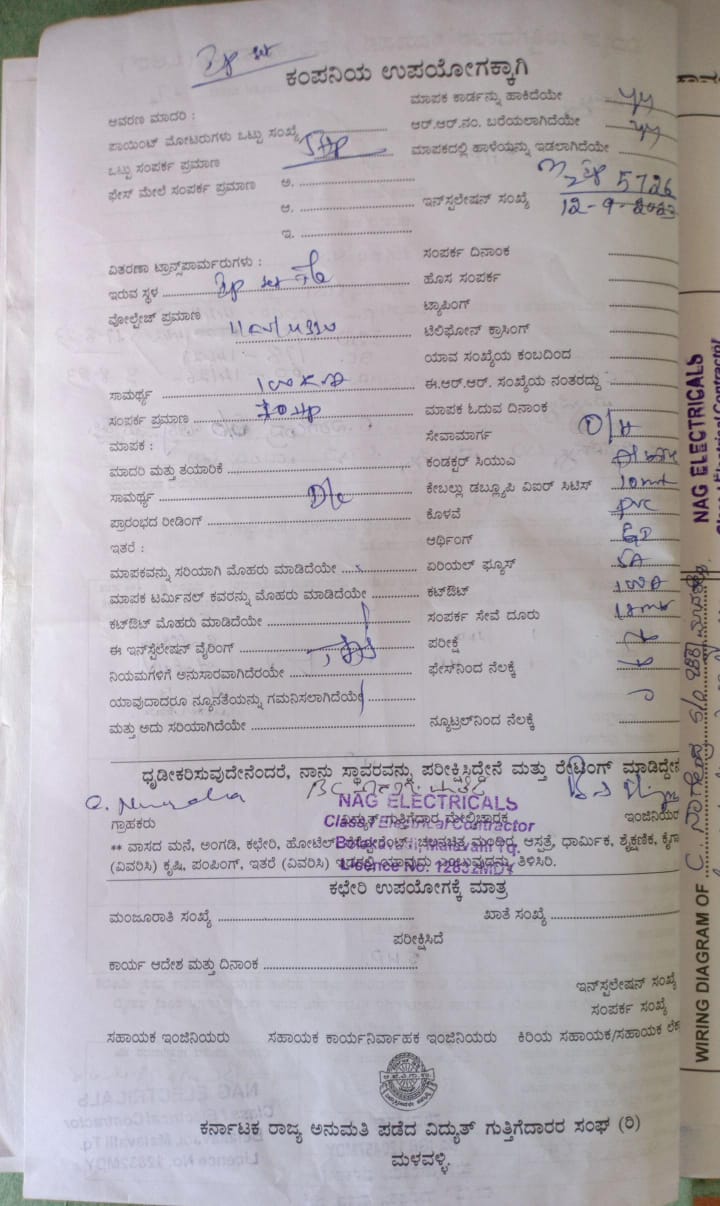 IP set
ಕಂಪನಿಯ ಉಪಯೋಗಕ್ಕಾಗಿ
ಆವರಣ ಮಾದರಿ :
ಮಾಪಕ ಕಾರ್ಡನ್ನು ಹಾಕಿದೆಯೇ
ಪಾಯಿಂಟ್ ಮೋಟರುಗಳು ಒಟ್ಟು ಸಂಖ್ಯೆ
ಆರ್.ಆರ್.ನಂ. ಬರೆಯಲಾಗಿದೆಯೇ
ಒಟ್ಟು ಸಂಪರ್ಕ ಪ್ರಮಾಣ 5HP
ಮಾಪಕದಲ್ಲಿ ಹಾಳೆಯನ್ನು ಇಡಲಾಗಿದೆಯೇ
ಫೇಸ್ ಮೇಲೆ ಸಂಪರ್ಕ ಪ್ರಮಾಣ ಅ.
ಆ.
ಇ.
ಇನ್‌ಸ್ಪಲೇಷನ್ ಸಂಖ್ಯೆ 5726
12-9-2023
ವಿತರಣಾ ಟ್ರಾನ್ಸ್‌ಪಾರ್ಮರುಗಳು :
ಸಂಪರ್ಕ ದಿನಾಂಕ
ಇರುವ ಸ್ಥಳ IP set
ಹೊಸ ಸಂಪರ್ಕ
ವೋಲ್ಟೇಜ್ ಪ್ರಮಾಣ
ಟ್ಯಾಪಿಂಗ್
ಟೆಲಿಫೋನ್ ಕ್ರಾಸಿಂಗ್
ಯಾವ ಸಂಖ್ಯೆಯ ಕಂಬದಿಂದ
ಸಾಮರ್ಥ್ಯ 100KVA
ಈ.ಆರ್.ಆರ್. ಸಂಖ್ಯೆಯ ನಂತರದ್ದು
ಸಂಪರ್ಕ ಪ್ರಮಾಣ
ಮಾಪಕ ಓದುವ ದಿನಾಂಕ
ಮಾಪಕ :
ಸೇವಾಮಾರ್ಗ O/H
ಮಾದರಿ ಮತ್ತು ತಯಾರಿಕೆ
ಕಂಡಕ್ಟರ್ ಸಿಯುಎ
ಸಾಮರ್ಥ್ಯ D/C
ಕೇಬಲ್ಲು ಡಬ್ಲ್ಯೂಪಿ ವಿಐರ್ ಸಿಟಿಸ್ 10mt
ಪ್ರಾರಂಭದ ರೀಡಿಂಗ್
ಕೊಳವೆ PVC
ಇತರೆ :
ಆರ್ಥಿಂಗ್ GI
ಮಾಪಕವನ್ನು ಸರಿಯಾಗಿ ಮೊಹರು ಮಾಡಿದೆಯೇ
ಏರಿಯಲ್ ಫ್ಯೂಸ್ 5A
ಮಾಪಕ ಟರ್ಮಿನಲ್ ಕವರನ್ನು ಮೊಹರು ಮಾಡಿದೆಯೇ
ಕಟ್‌ಔಟ್ 100A
ಕಟ್‌ಔಟ್ ಮೊಹರು ಮಾಡಿದೆಯೇ
ಸಂಪರ್ಕ ಸೇವೆ ದೂರು 18mt
ಈ ಇನ್‌ಸ್ಟಲೇಷನ್ ವೈರಿಂಗ್
ಪರೀಕ್ಷೆ
ನಿಯಮಗಳಿಗೆ ಅನುಸಾರವಾಗಿದೆರಯೇ
ಫೇಸ್‌ನಿಂದ ನೆಲಕ್ಕೆ
ಯಾವುದಾದರೂ ನ್ಯೂನತೆಯನ್ನು ಗಮನಿಸಲಾಗಿದೆಯೇ
ಮತ್ತು ಅದು ಸರಿಯಾಗಿದೆಯೇ
ನ್ಯೂಟ್ರಲ್‌ನಿಂದ ನೆಲಕ್ಕೆ
ಧೃಡೀಕರಿಸುವುದೇನೆಂದರೆ, ನಾನು ಸ್ಥಾವರವನ್ನು ಪರೀಕ್ಷಿಸಿದ್ದೇನೆ ಮತ್ತು ರೇಟಿಂಗ್ ಮಾಡಿದ್ದೇನೆ
NAG ELECTRICALS
ಗ್ರಾಹಕರು
ವಿದ್ಯುತ್ ಗುತ್ತಿಗೆದಾರ ಮೇಲ್ವಿಚಾರಕ
ಇಂಜಿನಿಯರ
Class I Electrical Contractor
** ವಾಸದ ಮನೆ, ಅಂಗಡಿ, ಕಛೇರಿ, ಹೋಟೆಲ್, ರೆಸ್ಟೋರೆಂಟ್, ಚಲನಚಿತ್ರ ಮಂದಿರ, ಆಸ್ಪತ್ರೆ, ಧಾರ್ಮಿಕ, ಶೈಕ್ಷಣಿಕ, ಕೈಗಾ
Malavalli Tq.
(ವಿವರಿಸಿ) ಕೃಷಿ, ಪಂಪಿಂಗ್, ಇತರೆ (ವಿವರಿಸಿ) ಇದರಲ್ಲಿ ಯಾವುದು ಎಂಬುವುದನ್ನು ತಿಳಿಸಿರಿ.
Licence No. 12832MDY
ಕಛೇರಿ ಉಪಯೋಗಕ್ಕೆ ಮಾತ್ರ
ಮಂಜೂರಾತಿ ಸಂಖ್ಯೆ
ಖಾತೆ ಸಂಖ್ಯೆ
ಪರೀಕ್ಷಿಸಿದೆ
ಕಾರ್ಯ ಆದೇಶ ಮತ್ತು ದಿನಾಂಕ
ಇನ್‌ಸ್ಪಲೇಷನ್ ಸಂಖ್ಯೆ
ಸಂಪರ್ಕ ಸಂಖ್ಯೆ
ಸಹಾಯಕ ಇಂಜಿನಿಯರು
ಸಹಾಯಕ ಕಾರ್ಯನಿರ್ವಾಹಕ ಇಂಜಿನಿಯರು
ಕಿರಿಯ ಸಹಾಯಕ/ಸಹಾಯಕ ಲೆಕ
ಕರ್ನಾಟಕ ರಾಜ್ಯ ಅನುಮತಿ ಪಡೆದ ವಿದ್ಯುತ್ ಗುತ್ತಿಗೆದಾರರ ಸಂಘ (ರಿ)
ಮಳವಳ್ಳಿ.
NAG ELECTRICALS
WIRING DIAGRAM OF C. ನಾಗೇಂದ್ರ S/O